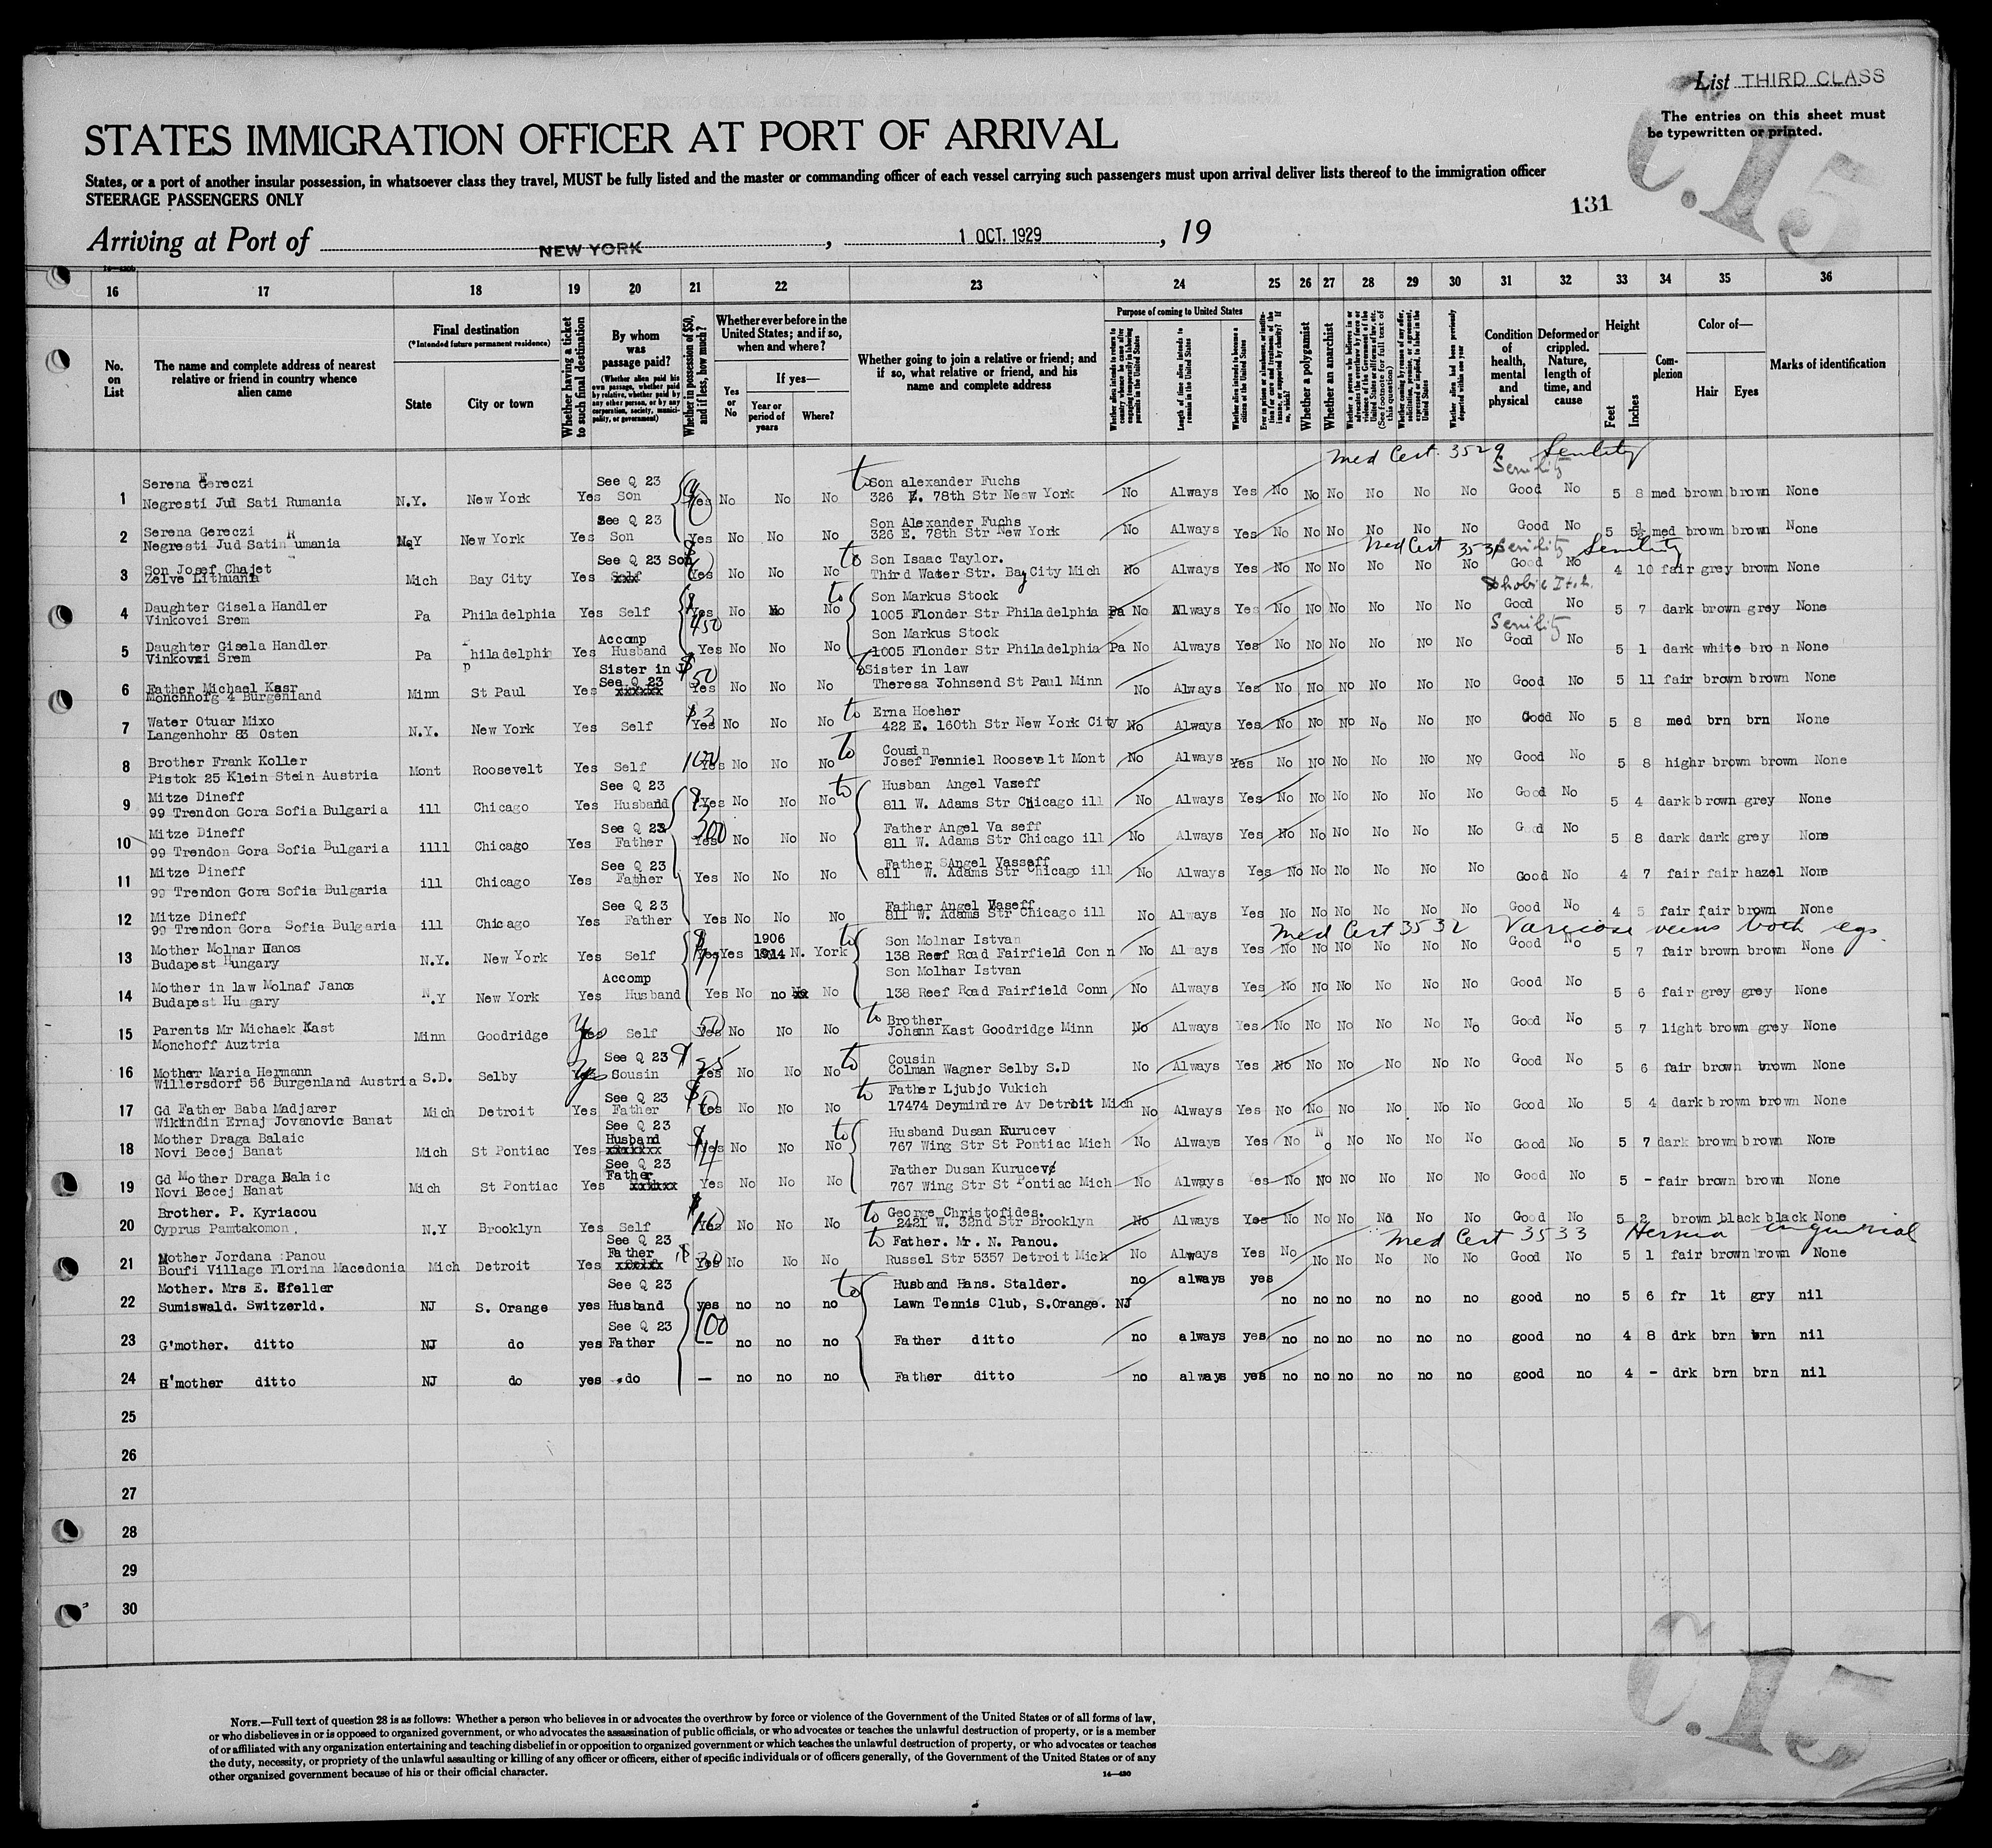 List THIRD CLASS
The entries on this sheet must
be typewritten or printed.
C.15
STATES IMMIGRATION OFFICER AT PORT OF ARRIVAL
States, or a port of another insular possession, in whatsoever class they travel, MUST be fully listed and the master or commanding officer of each vessel carrying such passengers must upon arrival deliver lists thereof to the immigration officer
STEERAGE PASSENGERS ONLY
131
Arriving at Port of NEW YORK, 1 OCT. 1929, 19
16 17 18 19 20 21 22 23 24 25 26 27 28 29 30 31 32 33 34 35 36
No. on List
The name and complete address of nearest relative or friend in country whence alien came
Final destination
(*Intended future permanent residence)
State
City or town
Whether having a ticket to such final destination
By whom was passage paid?
(Whether alien paid his own passage, whether paid by relative, whether paid by any other person, or by any corporation, society, municipality, or government)
Whether in possession of $50, and if less, how much?
Whether ever before in the United States; and if so, when and where?
Yes or No
If yes—
Year or period of years
Where?
Whether going to join a relative or friend; and if so, what relative or friend, and his name and complete address
Purpose of coming to United States
Length of time alien intends to remain in the United States
Whether alien intends to become a citizen of the United States
Whether a polygamist
Whether an anarchist
Whether alien had been previously deported within one year
Condition of health, mental and physical
Deformed or crippled. Nature, length of time, and cause
Height
Feet
Inches
Complexion
Color of—
Hair
Eyes
Marks of identification
med Cert. 3529 Senility
Senility
1 Serena Gereczi Negresti Jud Sati Rumania N.Y. New York Yes See Q 23 Son Yes No No No to Son alexander Fuchs 326 E. 78th Str Neew York No Always Yes No No No No No No Good No 5 8 med brown brown None
2 Serena Gereczi Negresti Jud Satin Rumania NY New York Yes See Q 23 Son Yes No No No Son Alexander Fuchs 326 E. 78th Str New York No Always Yes No No No No No No Good No 5 5½ med brown brown None
Med Cert 3531 Senility Senility
3 Son Josef Chajet Zelve Lithuania Mich Bay City Yes See Q 23 Son Yes No No No to Son Isaac Taylor. Third Water Str. Bay City Mich No Always Yes No No No No No No Good No 4 10 fair grey brown None
Dhobie Itch.
4 Daughter Gisela Handler Vinkovci Srem Pa Philadelphia Yes Self Yes $450 No No No to Son Markus Stock 1005 Flonder Str Philadelphia Pa No Always Yes No No No No No No Good No 5 7 dark brown grey None
Senility
5 Daughter Gisela Handler Vinkovzi Srem Pa Philadelphia Yes Accomp Husband Yes No No No Son Markus Stock 1005 Flonder Str Philadelphia Pa No Always Yes No No No No No No Good No 5 1 dark white bro n None
6 Father Michael Kasr Monchhofg 4 Burgenland Minn St Paul Yes Sister in l See Q 23 xxxxxx Yes $50 No No No to Sister in law Theresa Johnsend St Paul Minn No Always Yes No No No No No No Good No 5 11 fair brown brown None
7 Water Otuar Mixo Langenhohr 83 Osten N.Y. New York Yes Self Yes $3 No No No to Erna Hoeher 422 E. 160th Str New York City No Always Yes No No No No No No Good No 5 8 med brn brn None
8 Brother Frank Koller Pistok 25 Klein Stein Austria Mont Roosevelt Yes Self Yes 100 No No No to Cousin Josef Fenniel Roosevelt Mont No Always Yes No No No No No No Good No 5 8 highr brown brown None
9 Mitze Dineff 99 Trendon Gora Sofia Bulgaria ill Chicago Yes See Q 23 Husband Yes No No No to Husban Angel Vaseff 811 W. Adams Str Chicago ill No Always Yes No No No No No No Good No 5 4 dark brown grey None
10 Mitze Dineff 99 Trendon Gora Sofia Bulgaria illl Chicago Yes See Q 23 Father Yes 300 No No No Father Angel Va seff 811 W. Adams Str Chicago ill No Always Yes No No No No No No G d No 5 8 dark dark grey None
11 Mitze Dineff 99 Trendon Gora Sofia Bulgaria ill Chicago Yes See Q 23 Father Yes No No No Father Angel Vasseff 811 W. Adams Str Chicago ill No Always Yes No No No No No No Good No 4 7 fair fair hazel None
12 Mitze Dineff 99 Trendon Gora Sofia Bulgaria ill Chicago Yes See Q 23 Father Yes No No No Father Angel Vaseff 811 W. Adams Str Chicago ill No Always Yes No No No No No No Good No 4 5 fair fair brown None
Med Cert 3532 Varicose veins both legs.
13 Mother Molnar Janos Budapest Hungary N.Y. New York Yes Self Yes Yes 1906 1914 N. York to Son Molnar Istvan 138 Reef Road Fairfield Con n No Al ays Yes No No No No No No Good No 5 7 fair brown brown None
14 Mother in law Molnaf Janos Budapest Hu gary N.Y New York Yes Accomp Husband Yes No no No Son Molhar Istvan 138 Reef Road Fairfield Conn No Always Yes No No No No No No Good No 5 6 fair grey grey None
15 Parents Mr Michaek Kast Monchoff Auztria Minn Goodridge Yes Self Yes 50 No No No to Brother Johann Kast Goodridge Minn No Always Yes No No No No No No Good No 5 7 light brown grey None
16 Mother Maria Hermann Willersdorf 56 Burgenland Austria S.D. Selby Yes See Q 23 Cousin Yes $25 No No No to Cousin Colman Wagner Selby S.D No Always Yes No No No No No No Good No 5 6 fair brown brown None
17 Gd Father Baba Madjarer Wikindin Ernaj Jovanovic Banat Mich Detroit Yes See Q 23 Father Yes No No No to Father Ljubjo Vukich 17474 Deymindre Av Detroit Mich No Always Yes No No No No No No Good No 5 4 dark brown brown None
18 Mother Draga Balaic Novi Becej Banat Mich St Pontiac Yes See Q 23 Husband xxxxxxx Yes No No No to Husband Dusan Kurucev 767 Wing Str St Pontiac Mich No Always Yes No No No No No No Good No 5 7 dark brown brown None
19 Gd Mother Draga Balaic Novi Becej Banat Mich St Pontiac Yes See Q 23 Father xxxxxx Yes No No No Father Dusan Kurucev 767 Wing Str St Pontiac Mich No Always Yes No No No No No No Good No 5 - fair brown brown None
20 Brother. P. Kyriacou Cyprus Pamtakomon. N.Y Brooklyn Yes Self Yes No No No to George Christofides. 2421 W. 32nd Str Brooklyn No Always Yes No No No No No No Good No 5 2 brown black black None
Med Cert 3533 Hernia inguinal
21 Mother Jordana Panou Boufi Village Florina Macedonia Mich Detroit Yes See Q 23 Father Yes $30 No No No to Father. Mr. N. Panou. Russel Str 5357 Detroit Mich No Always Yes No No No No No No Good No 5 1 fair brown brown None
22 Mother. Mrs E. Gfeller Sumiswald. Switzerld. NJ S. Orange yes See Q 23 Husband yes no no no to Husband Hans. Stalder. Lawn Tennis Club, S.Orange. NJ no always yes no no no no no no good no 5 6 fr lt gry nil
23 G'mother. ditto NJ do yes See Q 23 Father 100 — no no no Father ditto no always yes no no no no no no good no 4 8 drk brn brn nil
24 G'mother ditto NJ do yes do — no no no Father ditto no always yes no no no no no no good no 4 - drk brn brn nil
25
26
27
28
29
30
C.15
NOTE.—Full text of question 28 is as follows: Whether a person who believes in or advocates the overthrow by force or violence of the Government of the United States or of all forms of law,
or who disbelieves in or is opposed to organized government, or who advocates the assassination of public officials, or who advocates or teaches the unlawful destruction of property, or is a member
of or affiliated with any organization entertaining and teaching disbelief in or opposition to organized government or which teaches the unlawful destruction of property, or who advocates or teaches
the duty, necessity, or propriety of the unlawful assaulting or killing of any officer or officers, either of specific individuals or of officers generally, of the Government of the United States or of any
other organized government because of his or their official character.
14—430